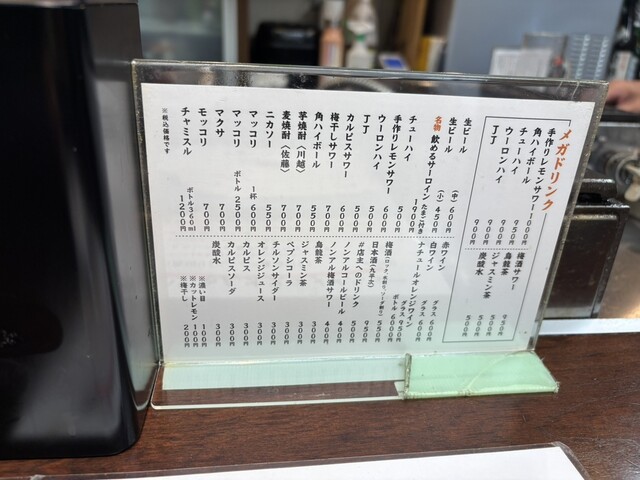 メガドリンク
手作りレモンサワー 1000円
角ハイボール 950円
チューハイ 900円
ウーロンハイ 900円
丁丁 900円
梅酒サワー 950円
烏龍茶 500円
ジャスミン茶 500円
炭酸水 500円
生ビール (中) 600円
生ビール (小) 450円
名物 飲めるサーロイン たまご付き 1900円
チューハイ 500円
手作りレモンサワー 600円
ウーロンハイ 500円
丁丁 500円
カルピスサワー 600円
梅干しサワー 700円
角ハイボール 550円
芋焼酎〈川越〉 700円
麦焼酎〈佐藤〉 700円
ニカソー 550円
マッコリ 1杯 600円
マッコリ ボトル 2500円
マクサ 700円
モッコリ 700円
チャミスル ボトル360ml 1200円
※税込価格です
赤ワイン グラス 600円
白ワイン グラス 600円
ナチュールオレンジワイン グラス 950円
梅酒(ロック、水割り、ソーダ割り) 500円
日本酒(九平次) 950円
#店主へのドリンク 500円
ノンアルコールビール 400円
ノンアル梅酒サワー 400円
烏龍茶 300円
ジャスミン茶 300円
ペプシコーラ 300円
チルソンサイダー 300円
オレンジジュース 300円
カルピス 300円
カルピスソーダ 300円
炭酸水 300円
※濃い目 100円
※カットレモン 100円
※梅干し 200円